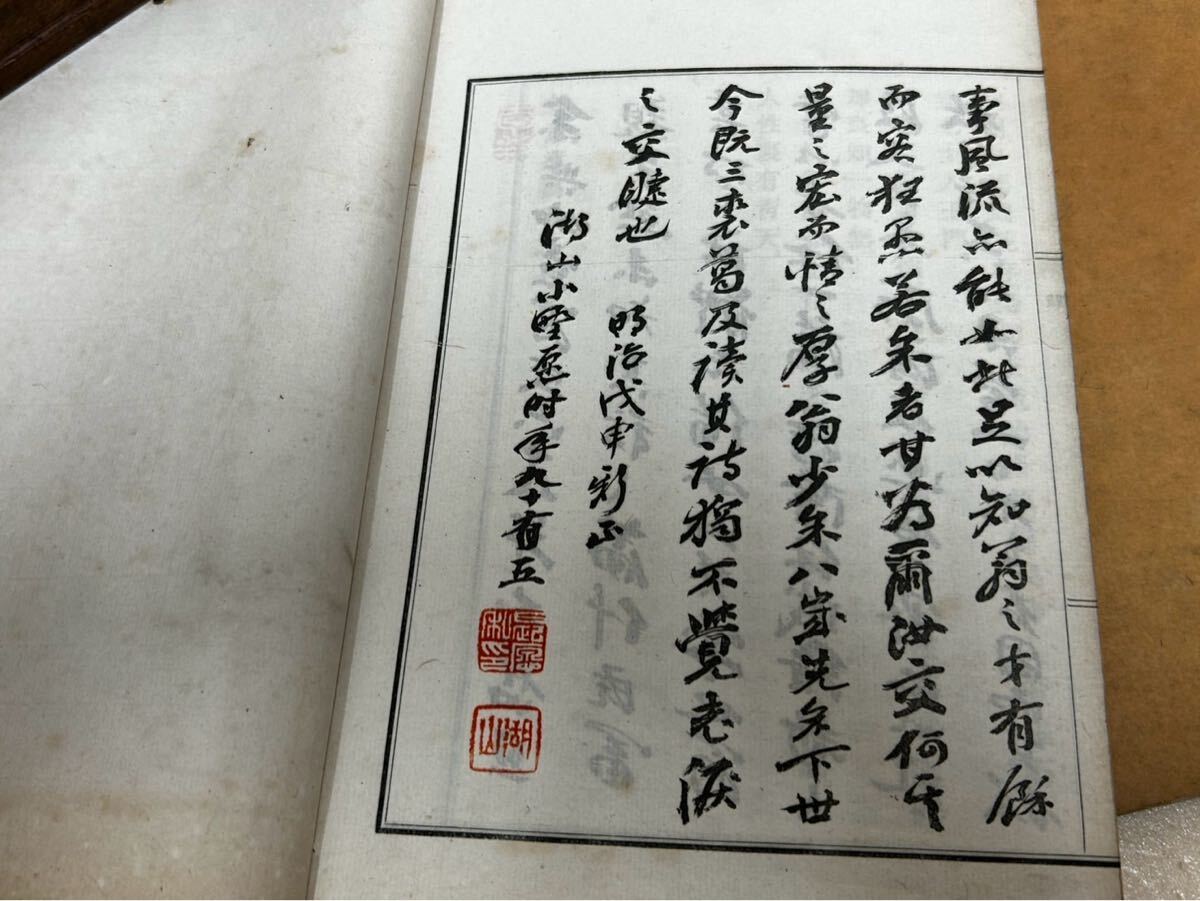 事風流亦能如此足以知翁之才有餘
而容狂愚若余者甘為爾汝交何其
量之宏而情之厚翁少余八歲先余下世
今既三裘葛及讀其詩稿不覺老淚
之交睫也　明治戊申新正
湖山小野愿時年九十有五
長愿私印
湖山